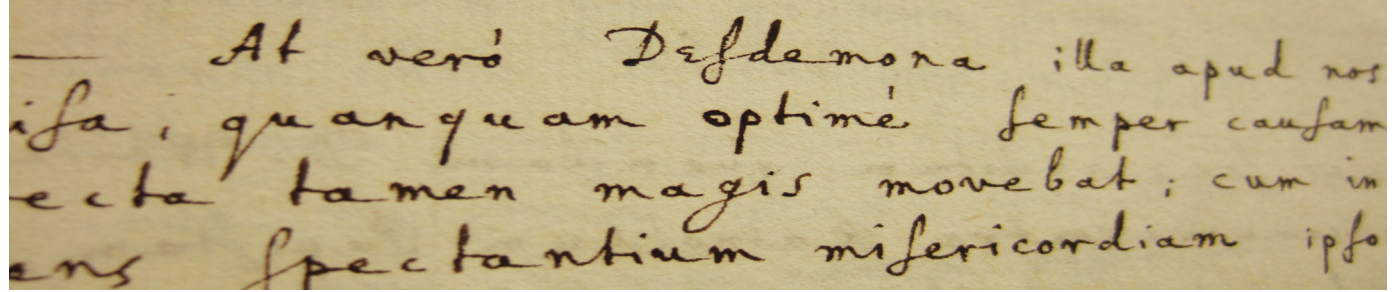 — At verò Desdemona illa apud nos
isa, quanquam optimè semper causam
ecta tamen magis movebat; cum in
ens spectantium misericordiam ipso